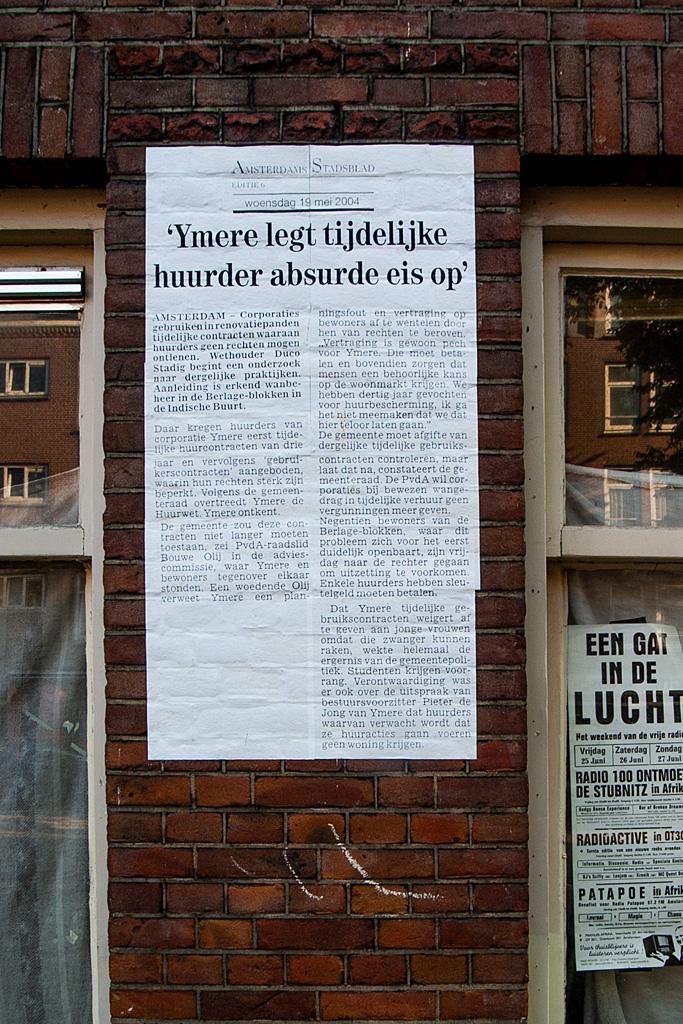 AMSTERDAMS STADSBLAD
EDITIE 6
woensdag 19 mei 2004
‘Ymere legt tijdelijke
huurder absurde eis op’
AMSTERDAM – Corporaties
gebruiken in renovatiepanden
tijdelijke contracten waaraan
huurders geen rechten mogen
ontlenen. Wethouder Duco
Stadig begint een onderzoek
naar dergelijke praktijken.
Aanleiding is erkend wanbe-
heer in de Berlage-blokken in
de Indische Buurt.
Daar kregen huurders van
corporatie Ymere eerst tijde-
lijke huurcontracten van drie
jaar en vervolgens ‘gebrui-
kerscontracten’ aangeboden,
waarin hun rechten sterk zijn
beperkt. Volgens de gemeen-
teraad overtreedt Ymere de
Huurwet. Ymere ontkent.
De gemeente zou deze con-
tracten niet langer moeten
toestaan, zei PvdA-raadslid
Bouwe Olij in de advies-
commissie, waar Ymere en
bewoners tegenover elkaar
stonden. Een woedende Olij
verweet Ymere een plan-
ningsfout en vertraging op
bewoners af te wentelen door
hen van rechten te beroven.
„Vertraging is gewoon pech
voor Ymere. Die moet beta-
len en bovendien zorgen dat
mensen een behoorlijke kans
op de woonmarkt krijgen. We
hebben dertig jaar gevochten
voor huurbescherming, ik ga
het niet meemaken dat we dat
hier teloor laten gaan.”
De gemeente moet afgifte van
dergelijke tijdelijke gebruiks-
contracten controleren, maar
laat dat na, constateert de ge-
meenteraad. De PvdA wil cor-
poraties bij bewezen wange-
drag in tijdelijke verhuur geen
vergunningen meer geven.
Negentien bewoners van de
Berlage-blokken, waar dit
probleem zich voor het eerst
duidelijk openbaart, zijn vrij-
dag naar de rechter gegaan
om uitzetting te voorkomen.
Enkele huurders hebben sleu-
telgeld moeten betalen.
Dat Ymere tijdelijke ge-
bruikscontracten weigert af
te geven aan jonge vrouwen
omdat die zwanger kunnen
raken, wekte helemaal de
ergernis van de gemeentepoli-
tiek. Studenten krijgen voor-
rang. Verontwaardiging was
er ook over de uitspraak van
bestuursvoorzitter Pieter de
Jong van Ymere dat huurders
waarvan verwacht wordt dat
ze huuracties gaan voeren
geen woning krijgen.
EEN GAT
IN DE
LUCHT
Het weekend van de vrije radio
Vrijdag Zaterdag Zondag
25 Juni 26 Juni 27 Juni
RADIO 100 ONTMOE
DE STUBNITZ in Afrik
RADIOACTIVE in OT30
PATAPOE in Afri
Benefiet voor Radio Patapoe
Voor thuisblijvers is
luisteren verplicht!